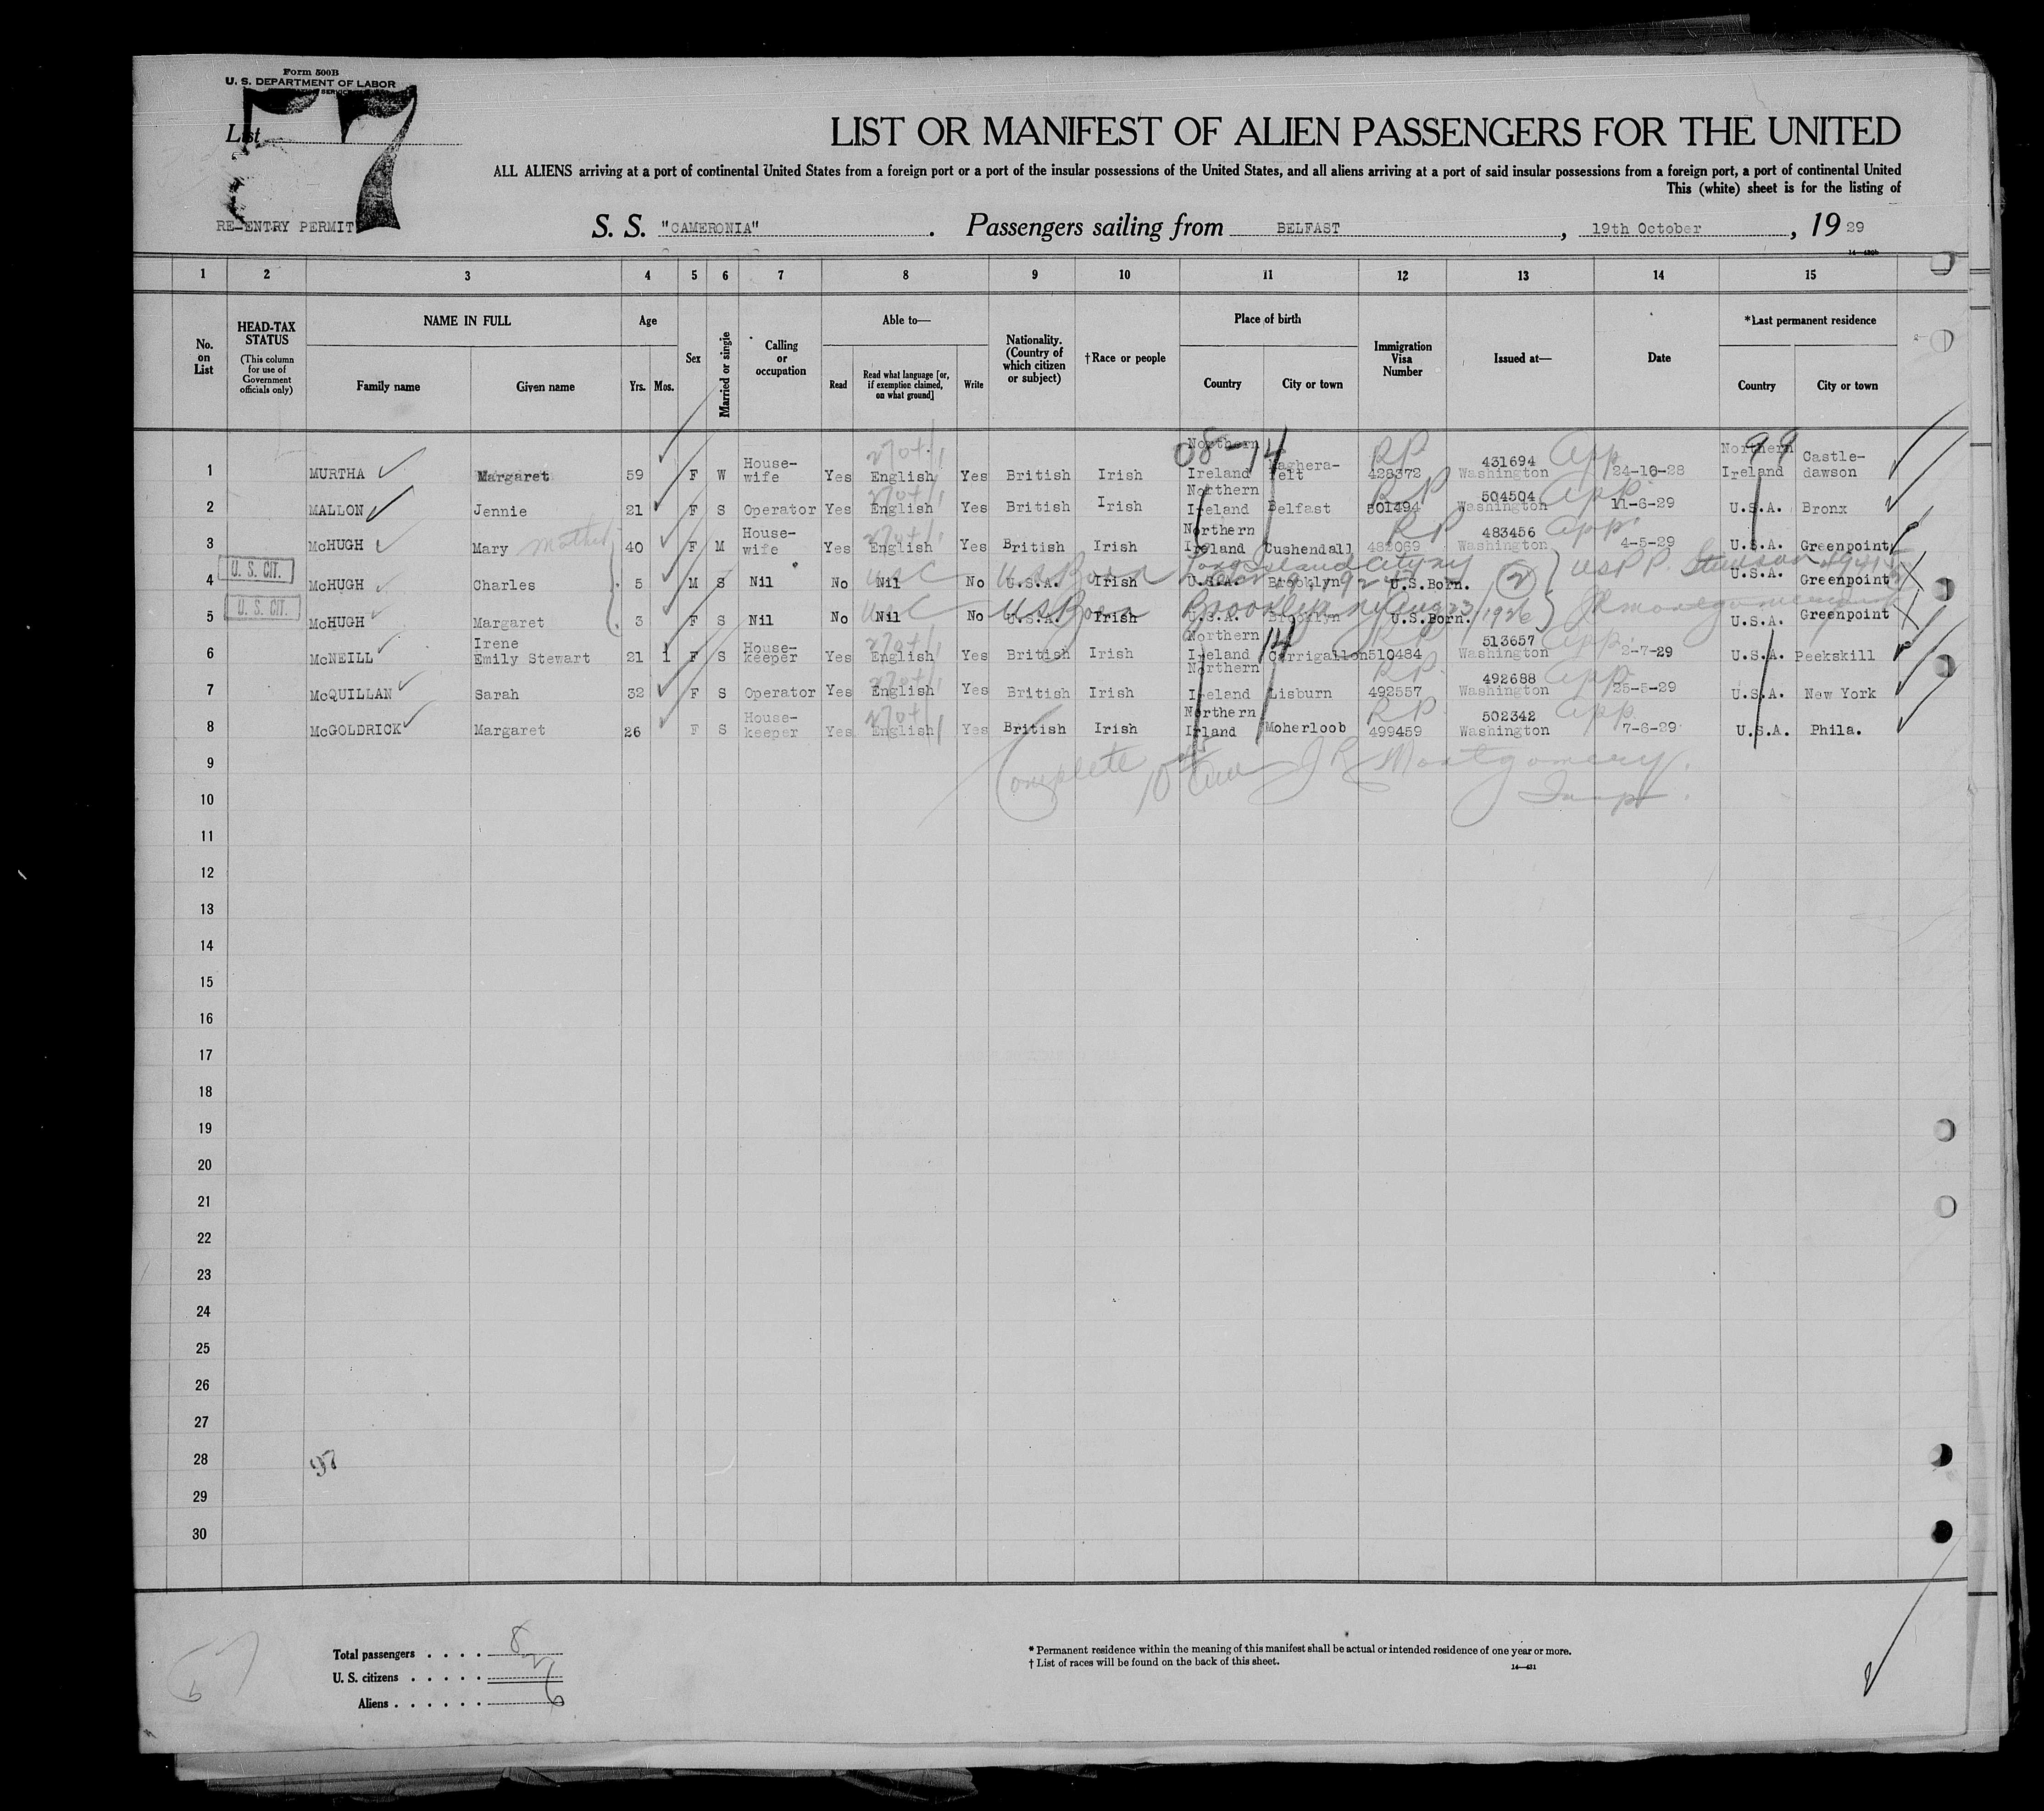 Form 500B
U. S. DEPARTMENT OF LABOR
List
57
LIST OR MANIFEST OF ALIEN PASSENGERS FOR THE UNITED
ALL ALIENS arriving at a port of continental United States from a foreign port or a port of the insular possessions of the United States, and all aliens arriving at a port of said insular possessions from a foreign port, a port of continental United
This (white) sheet is for the listing of
RE-ENTRY PERMIT S. S. "CAMERONIA". Passengers sailing from BELFAST, 19th October, 19 29
1 2 3 4 5 6 7 8 9 10 11 12 13 14 15
No. on List
HEAD-TAX STATUS (This column for use of Government officials only)
NAME IN FULL Family name Given name
Age Yrs. Mos.
Sex
Married or single
Calling or occupation
Able to— Read Read what language [or, if exemption claimed, on what ground] Write
Nationality. (Country of which citizen or subject)
†Race or people
Place of birth Country City or town
Immigration Visa Number
Issued at—
Date
*Last permanent residence Country City or town
08-14 99
1 MURTHA Margaret 59 F W House-wife Yes English Yes British Irish Northern Ireland Maghera-felt RP 428372 431694 Washington App 24-10-28 Northern Ireland Castle-dawson
2 MALLON Jennie 21 F S Operator Yes English Yes British Irish Northern Ireland Belfast RP 501494 504504 Washington App 11-6-29 U.S.A. Bronx
3 McHUGH Mary mother 40 F M House-wife Yes English Yes British Irish Northern Ireland Cushendall RP 483456 Washington App 4-5-29 U.S.A. Greenpoint
Long Island City NY
U. S. CIT. 4 McHUGH Charles 5 M S Nil No Nil USC No U.S.A. US Born Irish U.S.A. Brooklyn U.S.Born. 2 USPP U.S.A. Greenpoint
U. S. CIT. 5 McHUGH Margaret 3 F S Nil No Nil USC No U.S.A. US Born Irish U.S.A. Brooklyn Brooklyn NY Aug 23/1926 U.S.Born. JR Montgomery U.S.A. Greenpoint
6 McNEILL Irene Emily Stewart 21 1 F S House-keeper Yes English Yes British Irish Northern Ireland 14 Carrigallon RP 510484 513657 Washington App 2-7-29 U.S.A. Peekskill
7 McQUILLAN Sarah 32 F S Operator Yes English Yes British Irish Northern Ireland Lisburn RP 492557 492688 Washington App 25-5-29 U.S.A. New York
8 McGOLDRICK Margaret 26 F S House-keeper Yes English Yes British Irish Northern Irland Moherloob RP 499459 502342 Washington App 7-6-29 U.S.A. Phila.
9 Complete JR Montgomery.
10 Insp.
11
12
13
14
15
16
17
18
19
20
21
22
23
24
25
26
27
28 97
29
30
Total passengers . . . . 8
U. S. citizens . . . . . 2
Aliens . . . . . . 6
* Permanent residence within the meaning of this manifest shall be actual or intended residence of one year or more.
† List of races will be found on the back of this sheet.
14—431